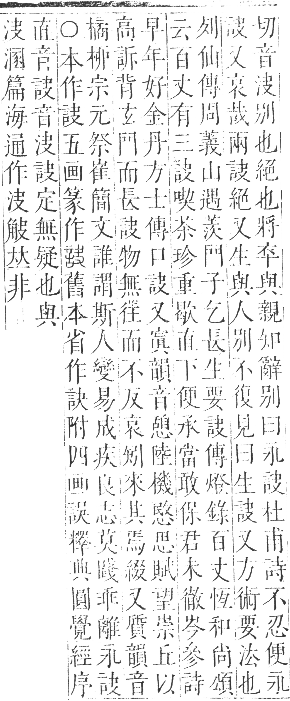 切音決別也絕也將卒與親知辭別曰永訣杜甫詩不忍便永
訣又哀哉兩訣絕又生與人別不復見曰生訣又方術要法也
列仙傳周義山遇羨門子乞長生要訣傳燈錄百丈恆和尚頌
云百丈有三訣喫茶珍重歇直下便承當敢保君未徹岑參詩
早年好金丹方士傳口訣又寘韻音憩陸機愍思賦望崇丘以
高訴背玄門而長訣物無徃而不反哀矧來其焉綴又質韻音
橘柳宗元祭崔簡文誰謂斯人變易成疾良志莫踐乖離永訣
○本作訣五画篆作舊本省作訣附四画誤釋典圓覺經序
直音訣音決訣定無疑也與
決溷篇海通作決觖夶非